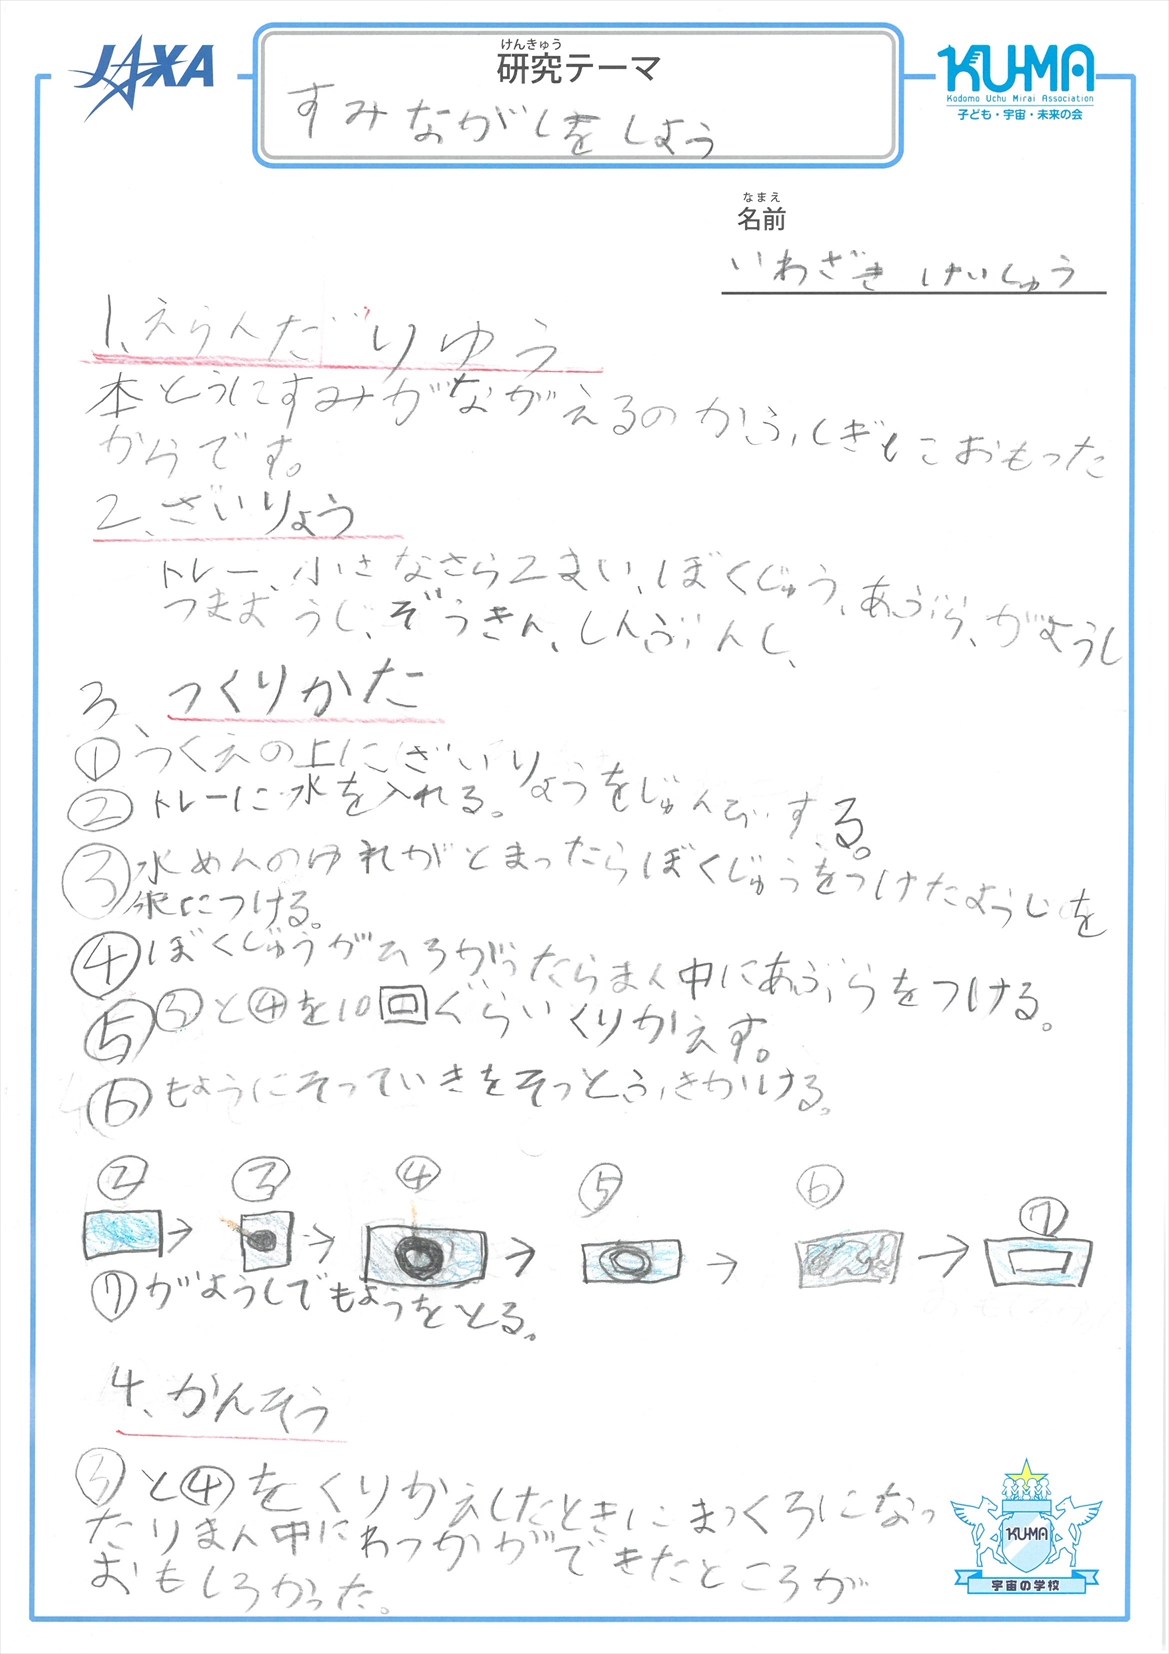 JAXA
けんきゅう
研究テーマ
すみながしをしよう
KUMA
Kodomo Uchu Mirai Association
子ども・宇宙・未来の会
なまえ
名前
いわざき けいしゅう
1、えらんだりゆう
本とうにすみがながえるのかふしぎとおもった
からです。
2、ざいりょう
トレー、小さなさら2まい、ぼくじゅう、あぶら、がようし
つまようじ、ぞうきん、しんぶんし、
3、つくりかた
①つくえの上にざいりょうをじゅんびする。
②トレーに水を入れる。
③水めんのゆれがとまったらぼくじゅうをつけたようじを
水につける。
④ぼくじゅうがひろがったらまん中にあぶらをつける。
⑤③と④を10回ぐらいくりかえす。
⑥もようにそっていきをそっとふきかける。
② ③ ④ ⑤ ⑥ ⑦
⑦がようしでもようをとる。
4、かんそう
③と④をくりかえしたときにまっくろになっ
たりまん中にわっかができたところが
おもしろかった。
KUMA
宇宙の学校